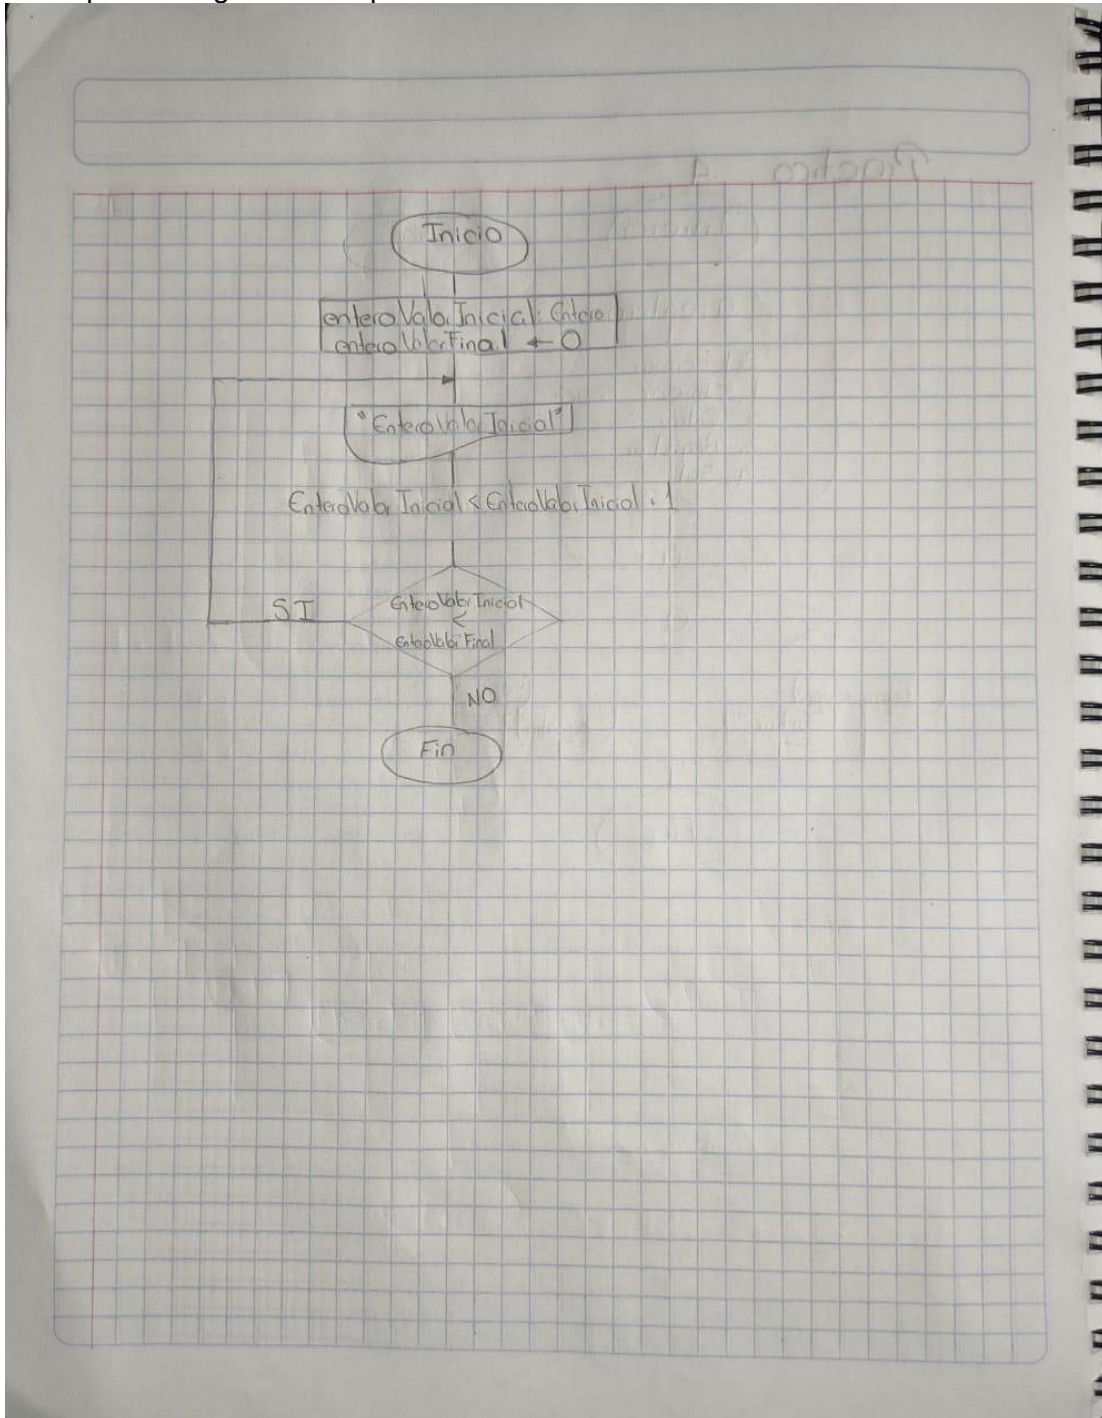 Inicio
enteroValorInicial: Entero
enteroValorFinal ← 0
"EnteroValorInicial"
EnteroValorInicial < EnteroValorInicial . 1
SI
EnteroValorInicial
<
EnteroValorFinal
NO
Fin